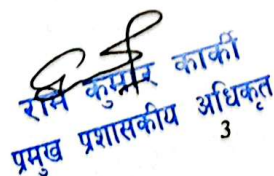 राम कुमार कार्की
प्रमुख प्रशासकीय अधिकृत
3